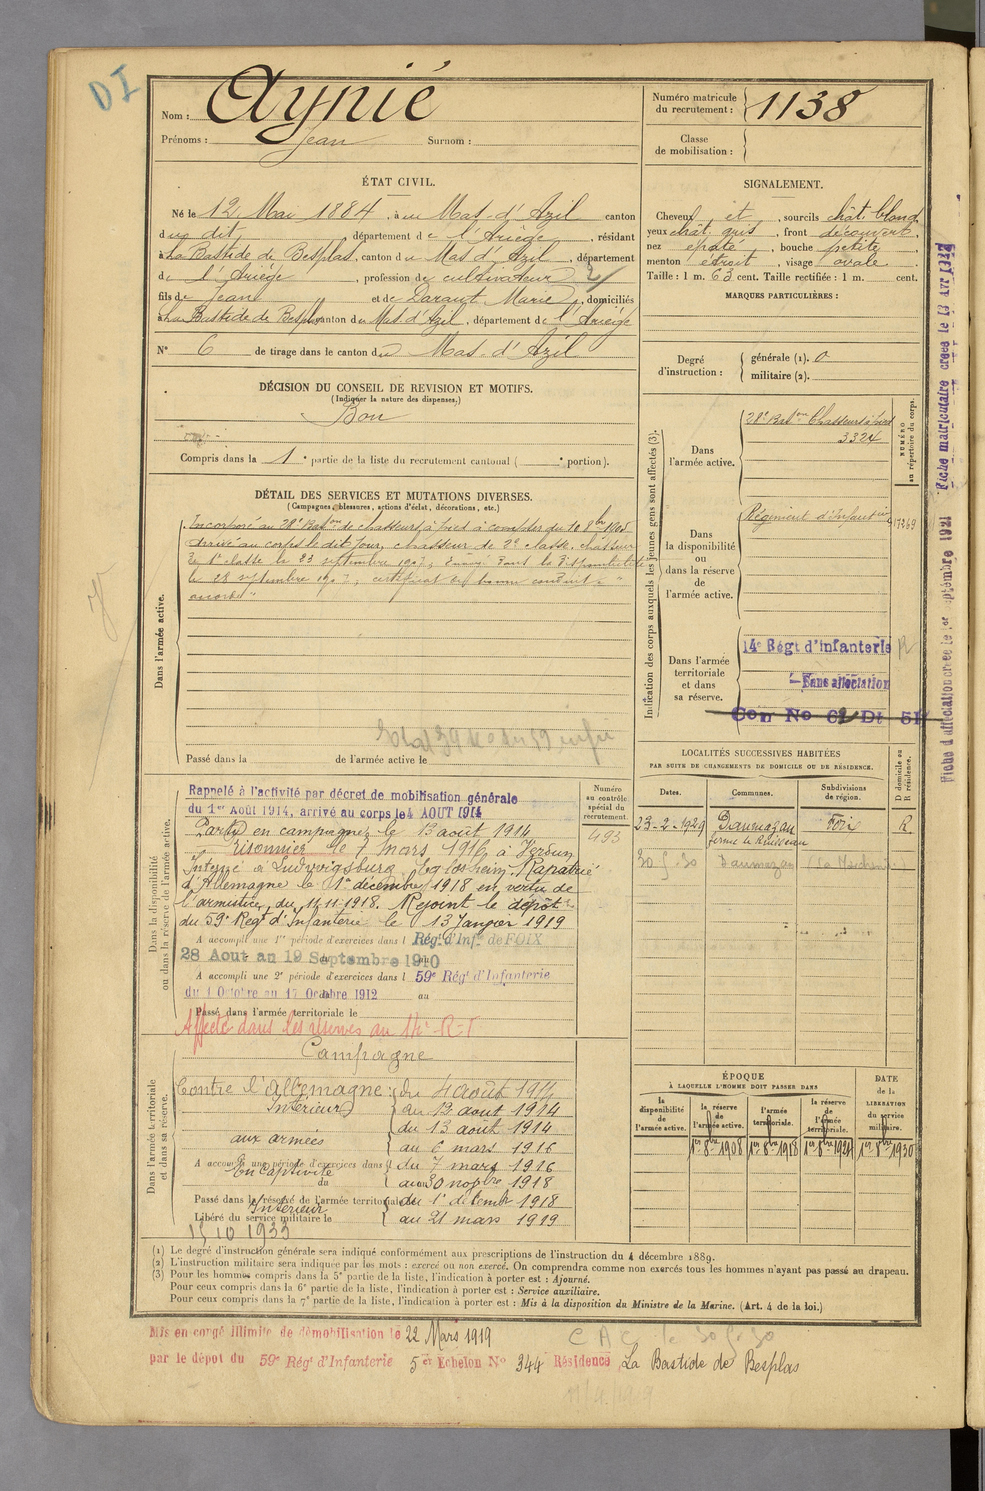 DI
Nom : Aynié
Prénoms : Jean Surnom :
Numéro matricule du recrutement : 1138
Classe de mobilisation :
ÉTAT CIVIL.
Né le 12 Mai 1884, à au Mas-d'Azil canton
du dit, département de l'Ariège, résidant
à La Bastide de Besplas, canton du Mas d'Azil, département
de l'Ariège, profession de cultivateur
fils de Jean et de Daraut Marie, domiciliés
à La Bastide de Besplas canton du Mas d'Azil, département de l'Ariège
N° 6 de tirage dans le canton du Mas-d'Azil
SIGNALEMENT.
Cheveux et, sourcils chât. blond
yeux chât. gris, front découvert,
nez épaté, bouche petite,
menton étroit, visage ovale.
Taille : 1 m. 63 cent. Taille rectifiée : 1 m. cent.
MARQUES PARTICULIÈRES :
Degré d'instruction : générale (1). 0
militaire (2).
DÉCISION DU CONSEIL DE REVISION ET MOTIFS.
(Indiquer la nature des dispenses.)
Bon
Compris dans la 1e partie de la liste du recrutement cantonal ( e portion).
DÉTAIL DES SERVICES ET MUTATIONS DIVERSES.
(Campagnes, blessures, actions d'éclat, décorations, etc.)
Dans l'armée active.
Incorporé au 28e Bat.on de chasseurs à pied à compter du 10 8bre 1905
arrivé au corps le dit jour, chasseur de 2e classe, chasseur
de 1e classe le 23 septembre 1907, Envoyé dans la disponibilité
le 28 septembre 1907, certificat de bonne conduite "
accordé"
Passé dans la de l'armée active le
Indication des corps auxquels les jeunes gens sont affectés (3).
NUMÉRO au répertoire du corps.
Dans l'armée active.
28e Bat.on Chasseurs à pied
3324
Dans la disponibilité ou dans la réserve de l'armée active.
Régiment d'Infanterie
Dans l'armée territoriale et dans sa réserve.
14e Régt d'Infanterie
Sans affectation
Fiche matriculaire créée le
Fiche d'affectation créée le 1er Septembre 1921
LOCALITÉS SUCCESSIVES HABITÉES
PAR SUITE DE CHANGEMENTS DE DOMICILE OU DE RÉSIDENCE.
Dates. Communes. Subdivisions de région. D domicile ou R résidence.
23-2-1929 Daumazan Foix R
ferme le Ruisseau
30 5 30 Daumazan
Dans la disponibilité ou dans la réserve de l'armée active.
Numéro au contrôle spécial du recrutement.
493
Rappelé à l'activité par décret de mobilisation générale
du 1er Août 1914, arrivé au corps le 4 AOUT 1914
Parti en campagne le 13 août 1914
Prisonnier le 7 mars 1916 à Verdun
Interné à Ludwigsburg Eglosheim. Rapatrié
d'Allemagne le 1er décembre 1918 en vertu de
l'armistice du 11-11-1918. Rejoint le dépôt
du 59e Régt d'Infanterie le 13 Janvier 1919
A accompli une 1re période d'exercices dans l Rég. d'Inf.ie de FOIX
28 Août au 19 Septembre 1910
A accompli une 2e période d'exercices dans l 59e Régt d'Infanterie
du 1 Octobre au 17 Octobre 1912 au
Passé dans l'armée territoriale le
Affecté dans les réserves au 14e R-I
Dans l'armée territoriale et dans sa réserve.
Campagne
Contre l'Allemagne : du 4 août 1914
Intérieur au 12 août 1914
du 13 août 1914
aux armées au 6 mars 1916
A accompli une période d'exercices dans l du 7 mars 1916
En captivité
du au 30 novbre 1918
Passé dans la réserve de l'armée territoriale du 1er décembre 1918
Intérieur
Libéré du service militaire le au 21 mars 1919
15 10 1933
ÉPOQUE
À LAQUELLE L'HOMME DOIT PASSER DANS
la disponibilité de l'armée active. la réserve de l'armée active. l'armée territoriale. la réserve de l'armée territoriale.
DATE de la LIBÉRATION du service militaire.
1er 8bre 1908 1er 8bre 1918 1er 8bre 1924 1er 8bre 1930
(1) Le degré d'instruction générale sera indiqué conformément aux prescriptions de l'instruction du 4 décembre 1889.
(2) L'instruction militaire sera indiquée par les mots : exercé ou non exercé. On comprendra comme non exercés tous les hommes n'ayant pas passé au drapeau.
(3) Pour les hommes compris dans la 5e partie de la liste, l'indication à porter est : Ajourné.
Pour ceux compris dans la 6e partie de la liste, l'indication à porter est : Service auxiliaire.
Pour ceux compris dans la 7e partie de la liste, l'indication à porter est : Mis à la disposition du Ministre de la Marine. (Art. 4 de la loi.)
Mis en congé illimité de démobilisation le 22 Mars 1919
par le dépôt du 59e Régt d'Infanterie 5e Echelon N° 344 Résidence La Bastide de Besplas